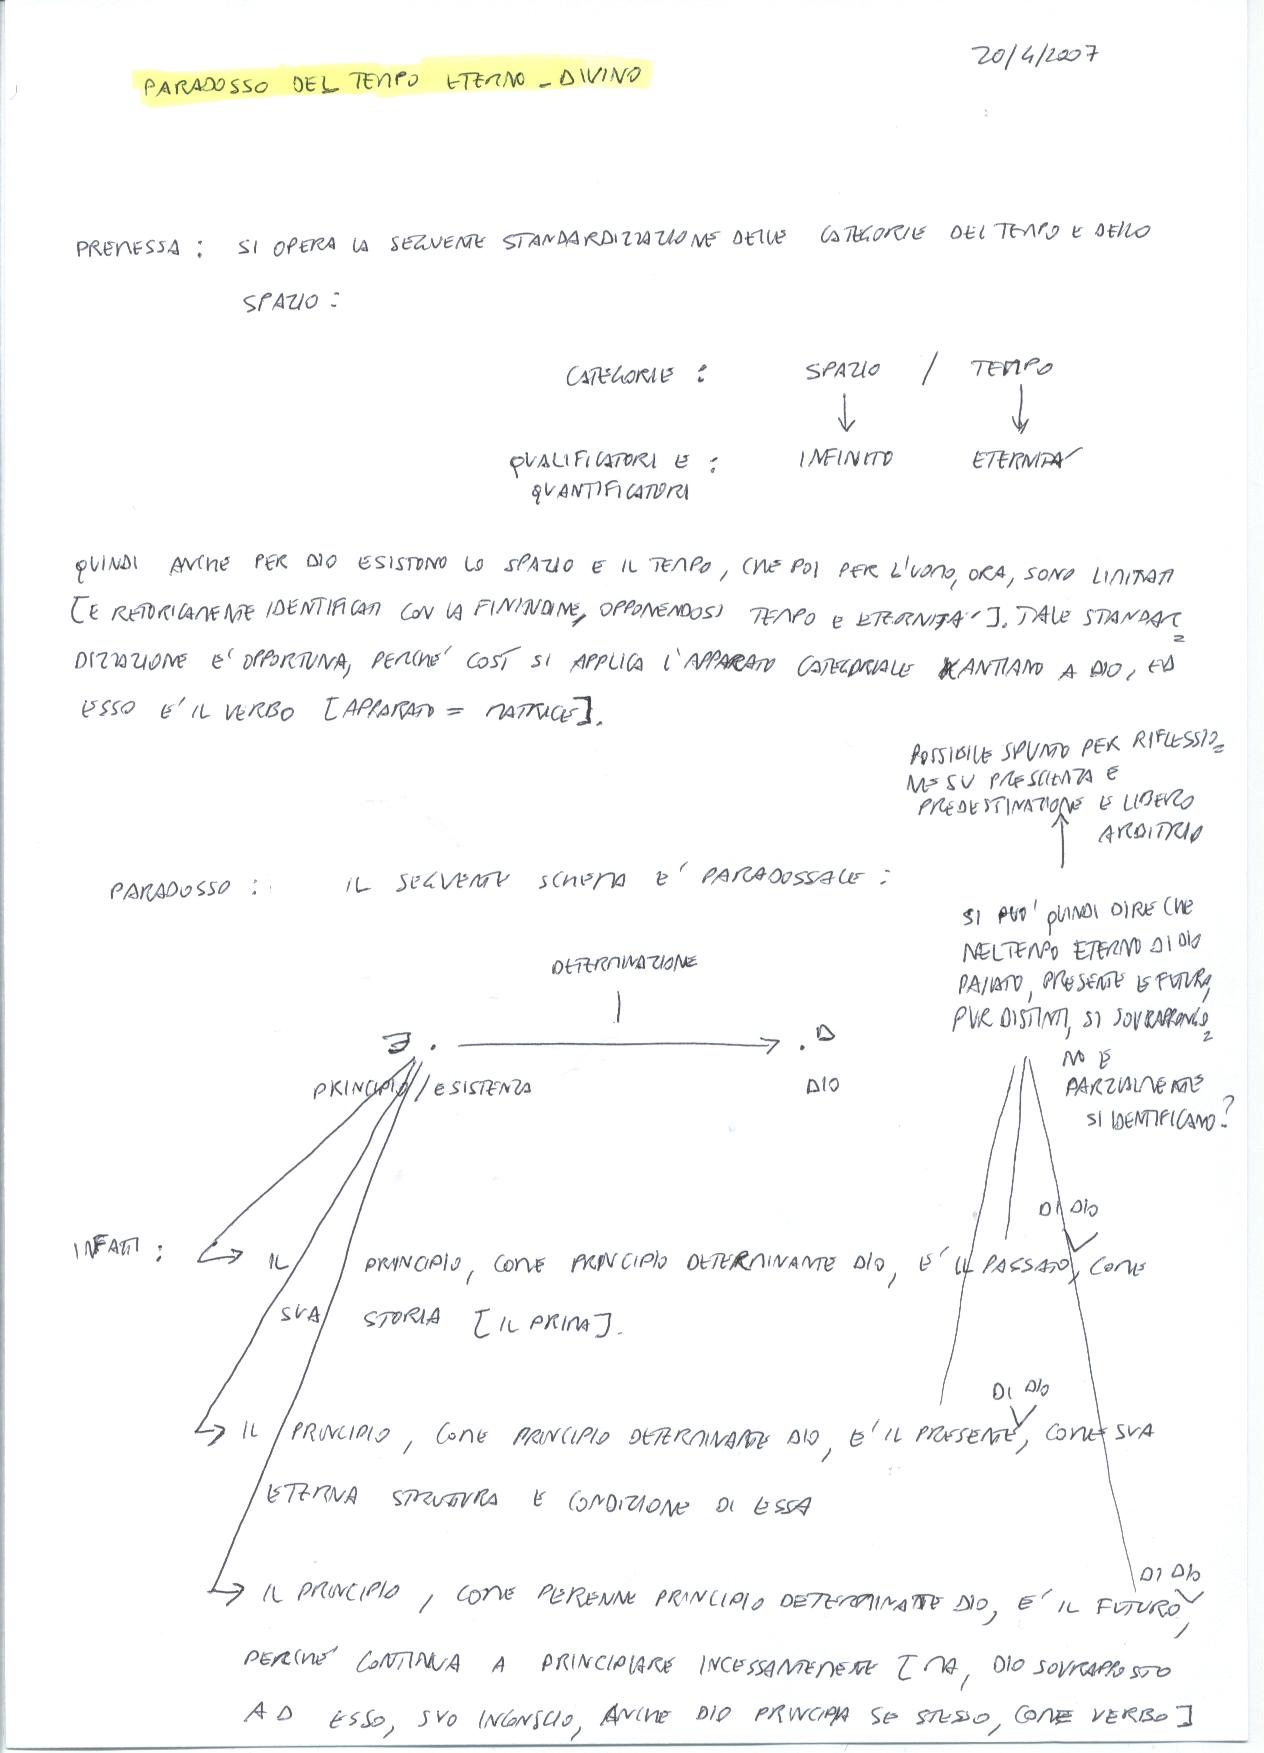 20/4/2007
PARADOSSO DEL TEMPO ETERNO - DIVINO
PREMESSA : SI OPERA LA SEGUENTE STANDARDIZZAZIONE DELLE CATEGORIE DEL TEMPO E DELLO
SPAZIO :
CATEGORIE : SPAZIO / TEMPO
QUALIFICATORI E : INFINITO ETERNITA'
QUANTIFICATORI
QUINDI ANCHE PER DIO ESISTONO LO SPAZIO E IL TEMPO, CHE POI PER L'UOMO, ORA, SONO LIMITATI
[E RETORICAMENTE IDENTIFICATI CON LA FINITUDINE, OPPONENDOSI TEMPO E ETERNITA']. TALE STANDAR=
DIZZAZIONE E' OPPORTUNA, PERCHE' COSÌ SI APPLICA L'APPARATO CATEGORIALE KANTIANO A DIO, ED
ESSO E' IL VERBO [APPARATO = MATRICE].
POSSIBILE SPUNTO PER RIFLESSIO=
NE SU PRESCIENZA E
PREDESTINAZIONE E LIBERO
ARBITRIO
PARADOSSO : IL SEGUENTE SCHEMA E' PARADOSSALE :
SI PUO' QUINDI DIRE CHE
NEL TEMPO ETERNO DI DIO
PASSATO, PRESENTE E FUTURO,
PUR DISTINTI, SI SOVRAPPONGO=
NO E
PARZIALMENTE
SI IDENTIFICANO?
DETERMINAZIONE
∃ . . D
PRINCIPIO / ESISTENZA DIO
INFATTI :
DI DIO
IL PRINCIPIO, COME PRINCIPIO DETERMINANTE DIO, E' IL PASSATO, COME
SUA STORIA [IL PRIMA].
DI DIO
IL PRINCIPIO, COME PRINCIPIO DETERMINANTE DIO, E' IL PRESENTE, COME SUA
ETERNA STRUTTURA E CONDIZIONE DI ESSA
DI DIO
IL PRINCIPIO, COME PERENNE PRINCIPIO DETERMINANTE DIO, E' IL FUTURO,
PERCHE' CONTINUA A PRINCIPIARE INCESSANTEMENTE [MA, DIO SOVRAPPOSTO
AD ESSO, SUO INCONSCIO, ANCHE DIO PRINCIPIA SE STESSO, COME VERBO]